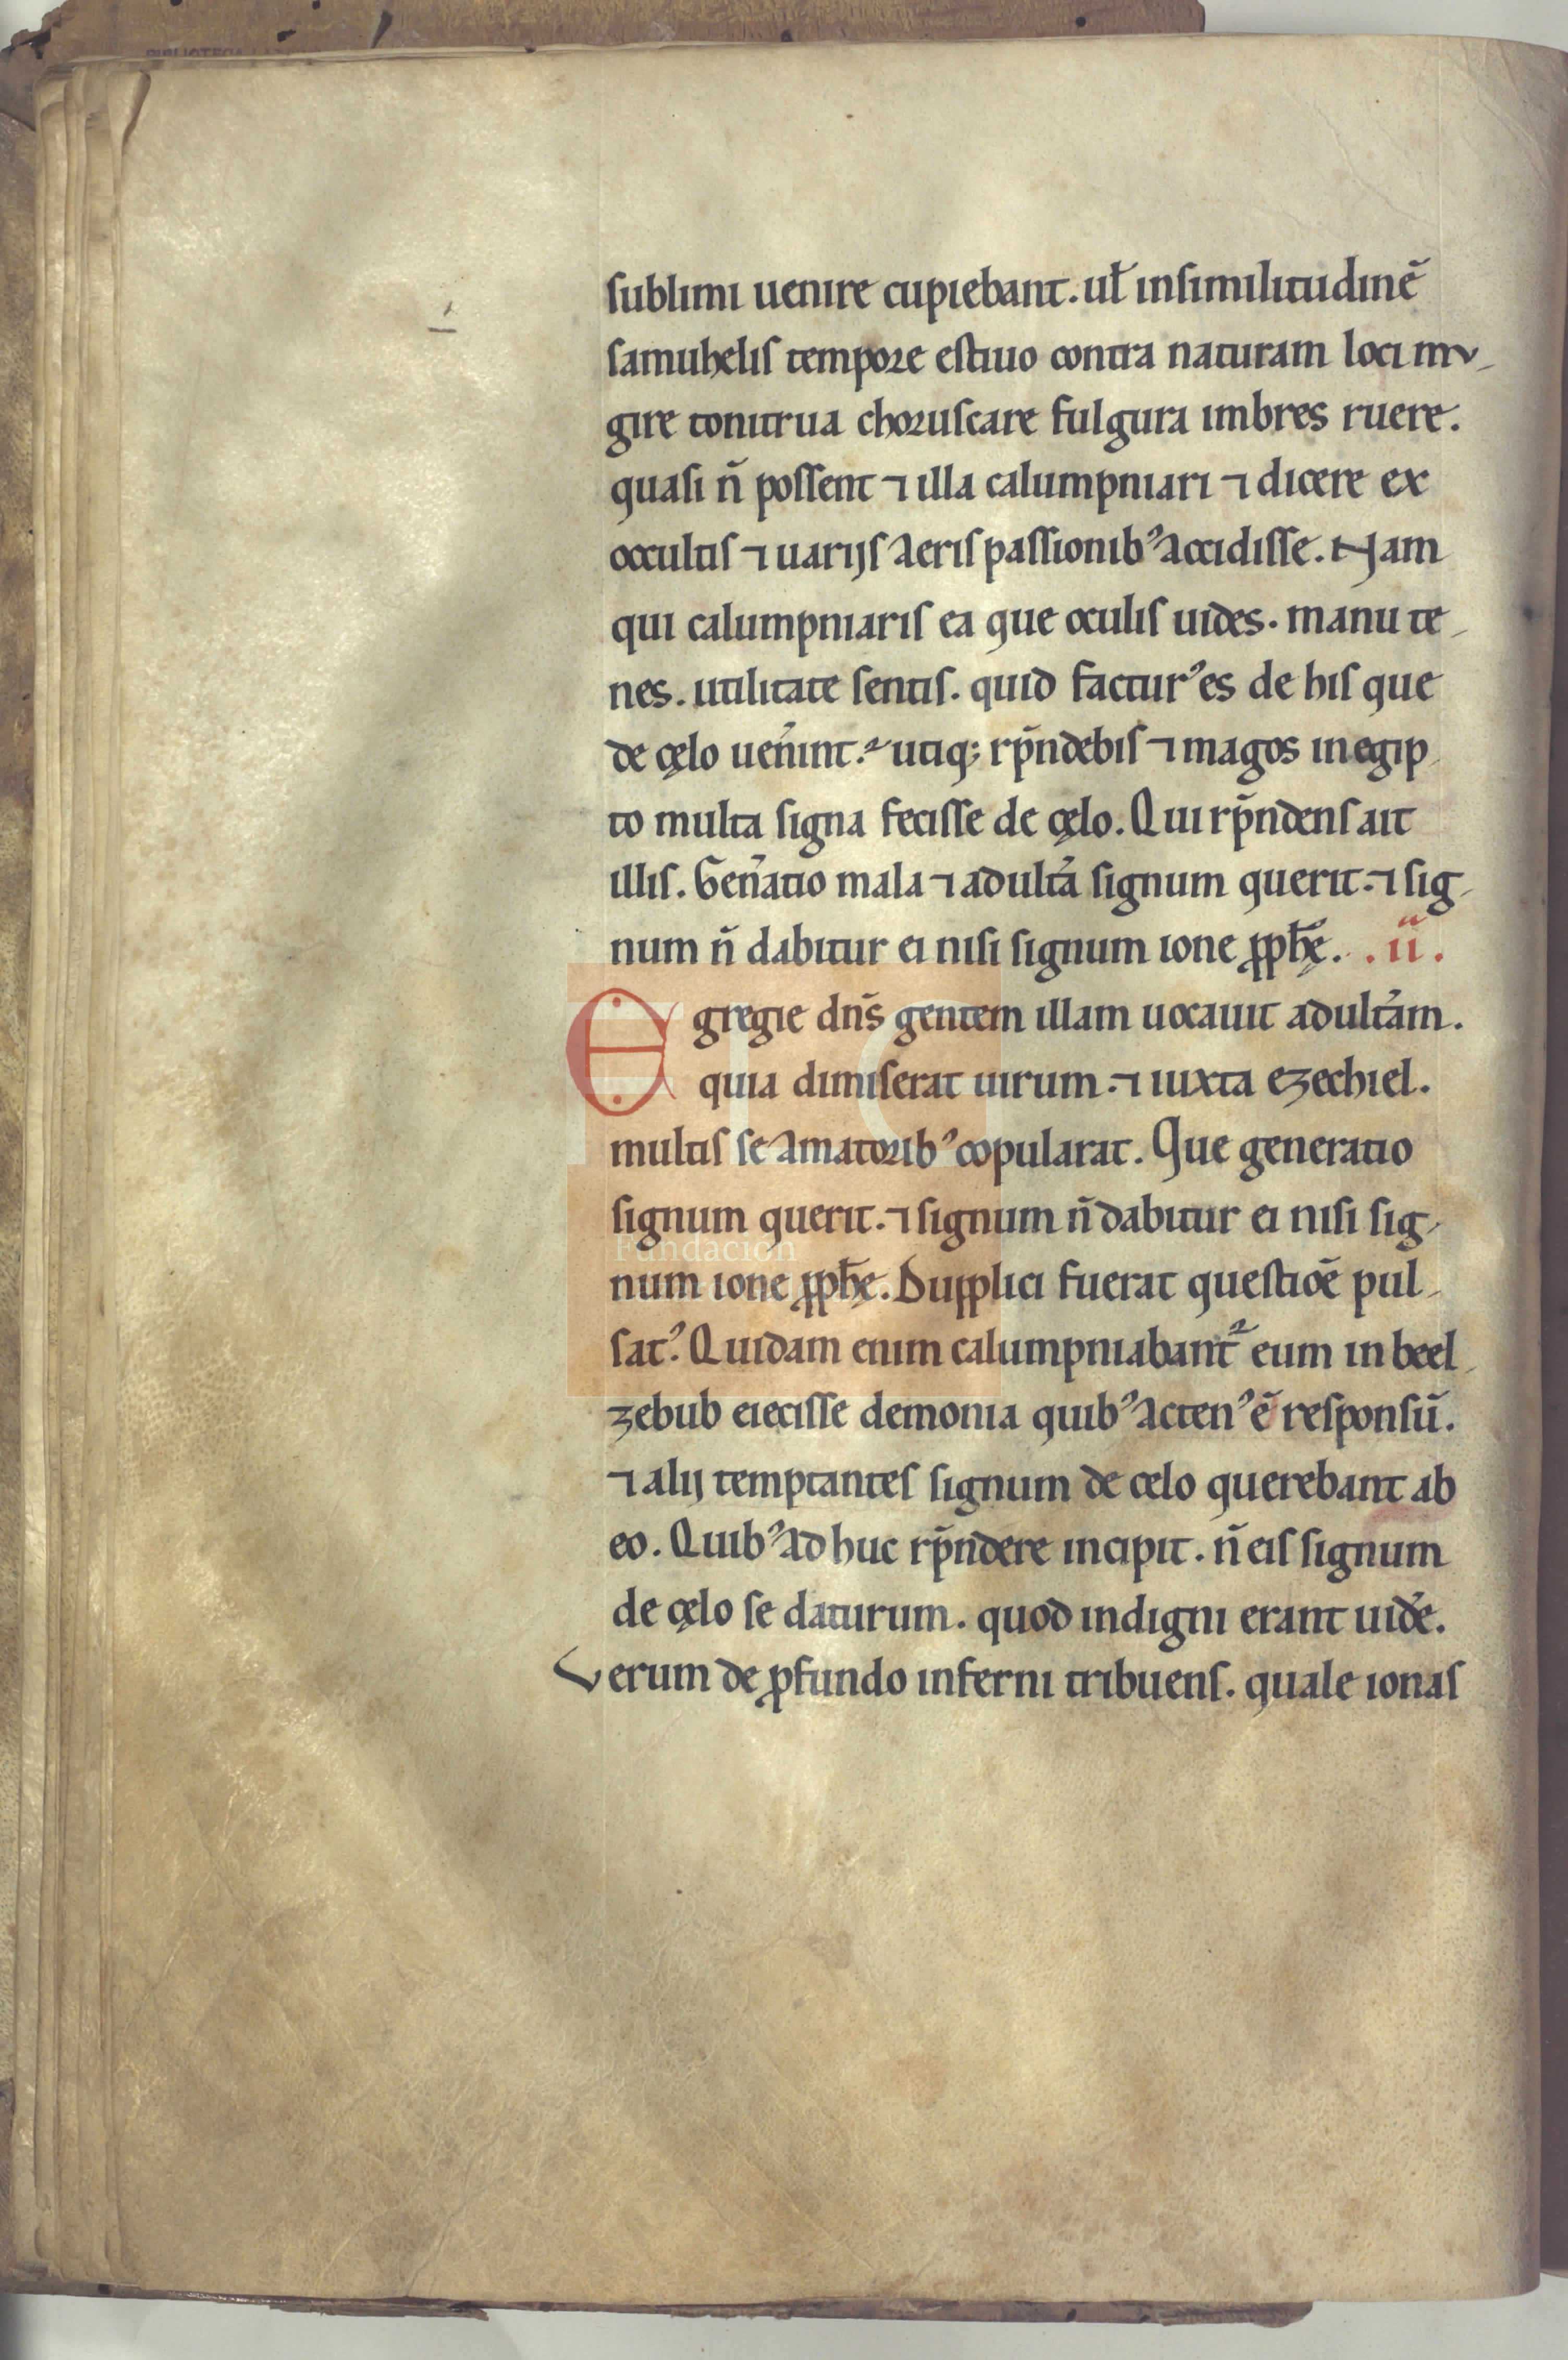 sublimi uenire cupiebant. ul̄ insimilitudinē
samuhelis tempore estiuo contra naturam loci mu-
gire tonitrua choruscare fulgura imbres ruere.
quasi n̄ possent ⁊ illa calumpniari ⁊ dicere ex
occultis ⁊ uarijs aeris passionibꝰ accidisse. Nam
qui calumpniaris ea que oculis uides. manu te-
nes. utilitate sentis. quid facturꝰ es de his que
de cęlo uen̄int. utiq; rp̄ndebis ⁊ magos in egip-
to multa signa fecisse de cęlo. Qui rp̄ndens ait
illis. Gen̄atio mala ⁊ adult̄a signum querit. ⁊ sig-
num n̄ dabitur ei nisi signum ione ꝓph̄ę. .ii.
Egregie dn̄s gentem illam uocauit adult̄am.
quia dimiserat uirum. ⁊ iuxta ezechiel.
multis se amatoribꝰ copularat. Que generatio
signum querit. ⁊ signum n̄ dabitur ei nisi sig-
num ione ꝓph̄ę. Dupplici fuerat questiōe pul-
satꝰ. Quidam enim calumpniabant᷑ eum in beel-
zebub eiecisse demonia quibꝰ actenꝰ ē responsū.
⁊ alij temptantes signum de celo querebant ab
eo. Quibꝰ ad huc rp̄ndere incipit. n̄ eis signum
de cęlo se daturum. quod indigni erant uid̄e.
Verum de ꝓfundo inferni tribuens. quale ionas
Fundación